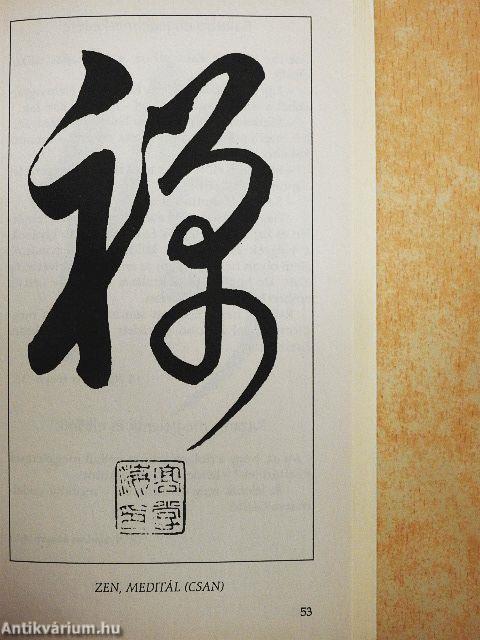 禅
ZEN, MEDITÁL (CSAN)
53
Antikvárium.hu